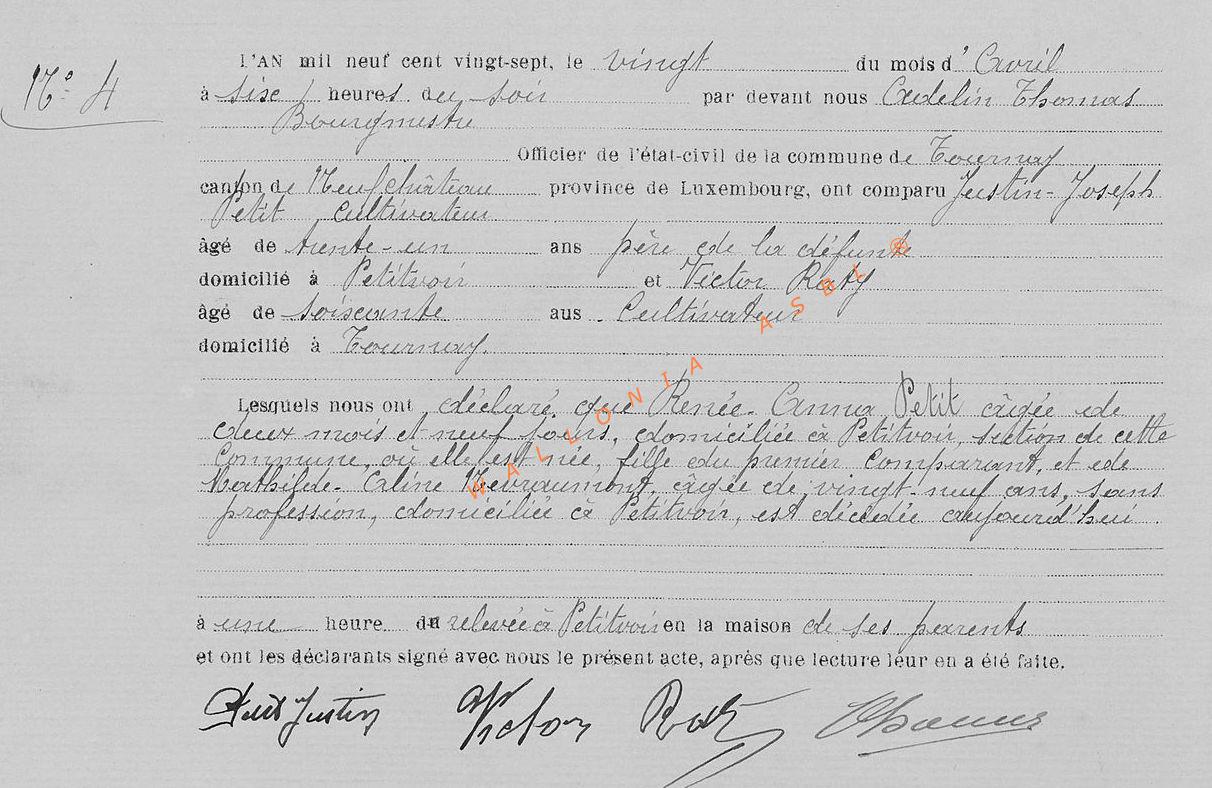 N° 4
L'AN mil neuf cent vingt-sept, le vingt du mois d' Avril
à six heures du soir par devant nous Adelin Thomas
Bourgmestre
Officier de l'état-civil de la commune de Tournay
canton de Neufchâteau province de Luxembourg, ont comparu Justin-Joseph
Petit cultivateur
âgé de trente-un ans père de la défunte
domicilié à Petitvoir et Victor Roty
âgé de soixante ans Cultivateur
domicilié à Tournay.
Lesquels nous ont déclaré que Renée-Anna Petit âgée de
deux mois et neuf jours, domiciliée à Petitvoir, section de cette
Commune, où elle est née, fille du premier comparant, et de
Mathilde-Aline Nevraumont, âgée de vingt-neuf ans, sans
profession, domiciliée à Petitvoir, est décédée aujourd'hui
à une heure de relevée à Petitvoir en la maison de ses parents
et ont les déclarants signé avec nous le présent acte, après que lecture leur en a été faite.
Petit Justin Victor Roty Thomas
WALLONIA ASBL ®